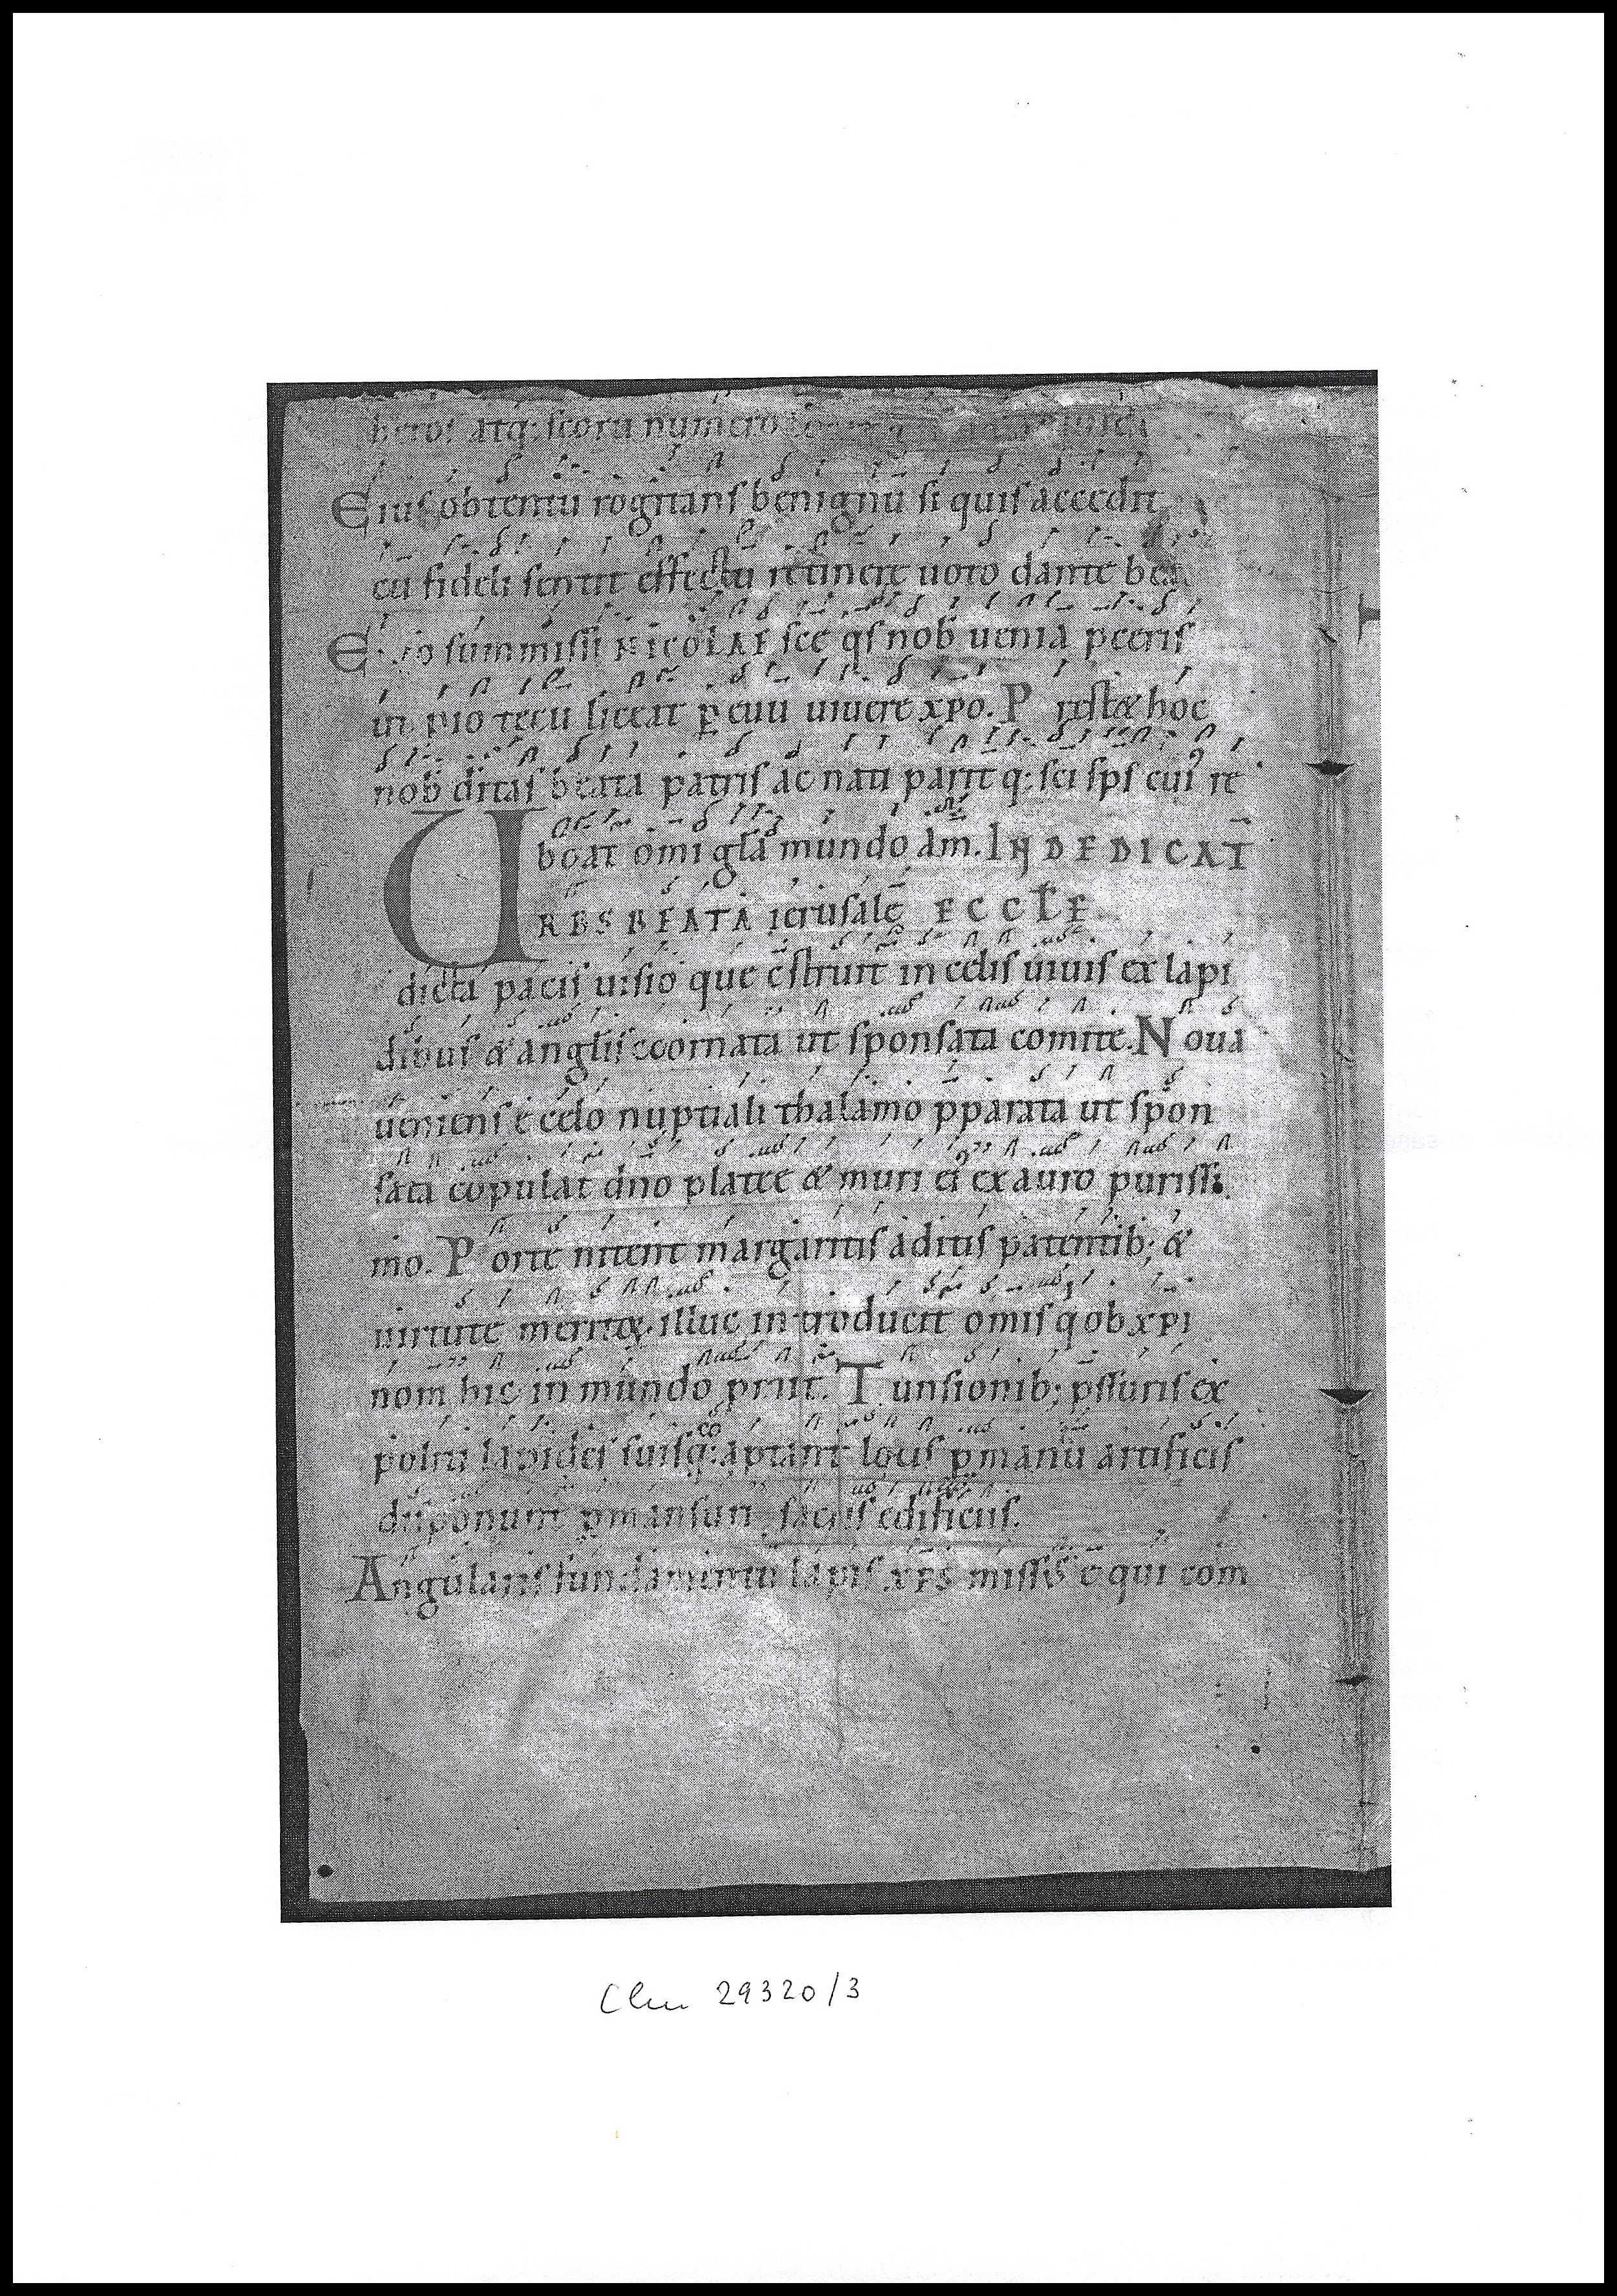 atq: scorū numero
Eiuſ obtentū rogitanſ benignū ſi quiſ accedit
cū fideli ſentit effectū retinere uoto dante bea
ſummiſſi NICOLAE ſcē qſ nob ueniā pceriſ
in pio tecū liceat ꝑ euū uiuere xpo. P reſtæ hoc
nob ditaſ beata patriſ ac nati parit q: ſci ſpſ cui' re
boat omi gl̄a mundo am̄. IN DEDICAT̄
URBS BEATA ieruſalē ECCL̄E
dicta paciſ uiſio que cſtruit in celiſ uiuiſ ex lapi
dibuſ & angliſ coornata ut ſponſata comite. Noua
ueniens e celo nuptiali thalamo pparata ut ſpon
ſata copulat dn̄o platee & muri ei' ex auro puriſſi
mo. P orte nitent margaritiſ aditiſ patentib; &
uirtute meritoꝝ illuc introducit omiſ q ob xpi
nom̄ hic in mundo p̄mit. T unſionib; p̄ſſuriſ ex
politi lapideſ ſuiſq: coaptant lociſ ꝑ manū artificiſ
diſponunt ꝑmanſuri ſacriſ edificiiſ.
Angulariſ fundamentū lapiſ XPS miſſuſ ē qui com
Clm 29320/3